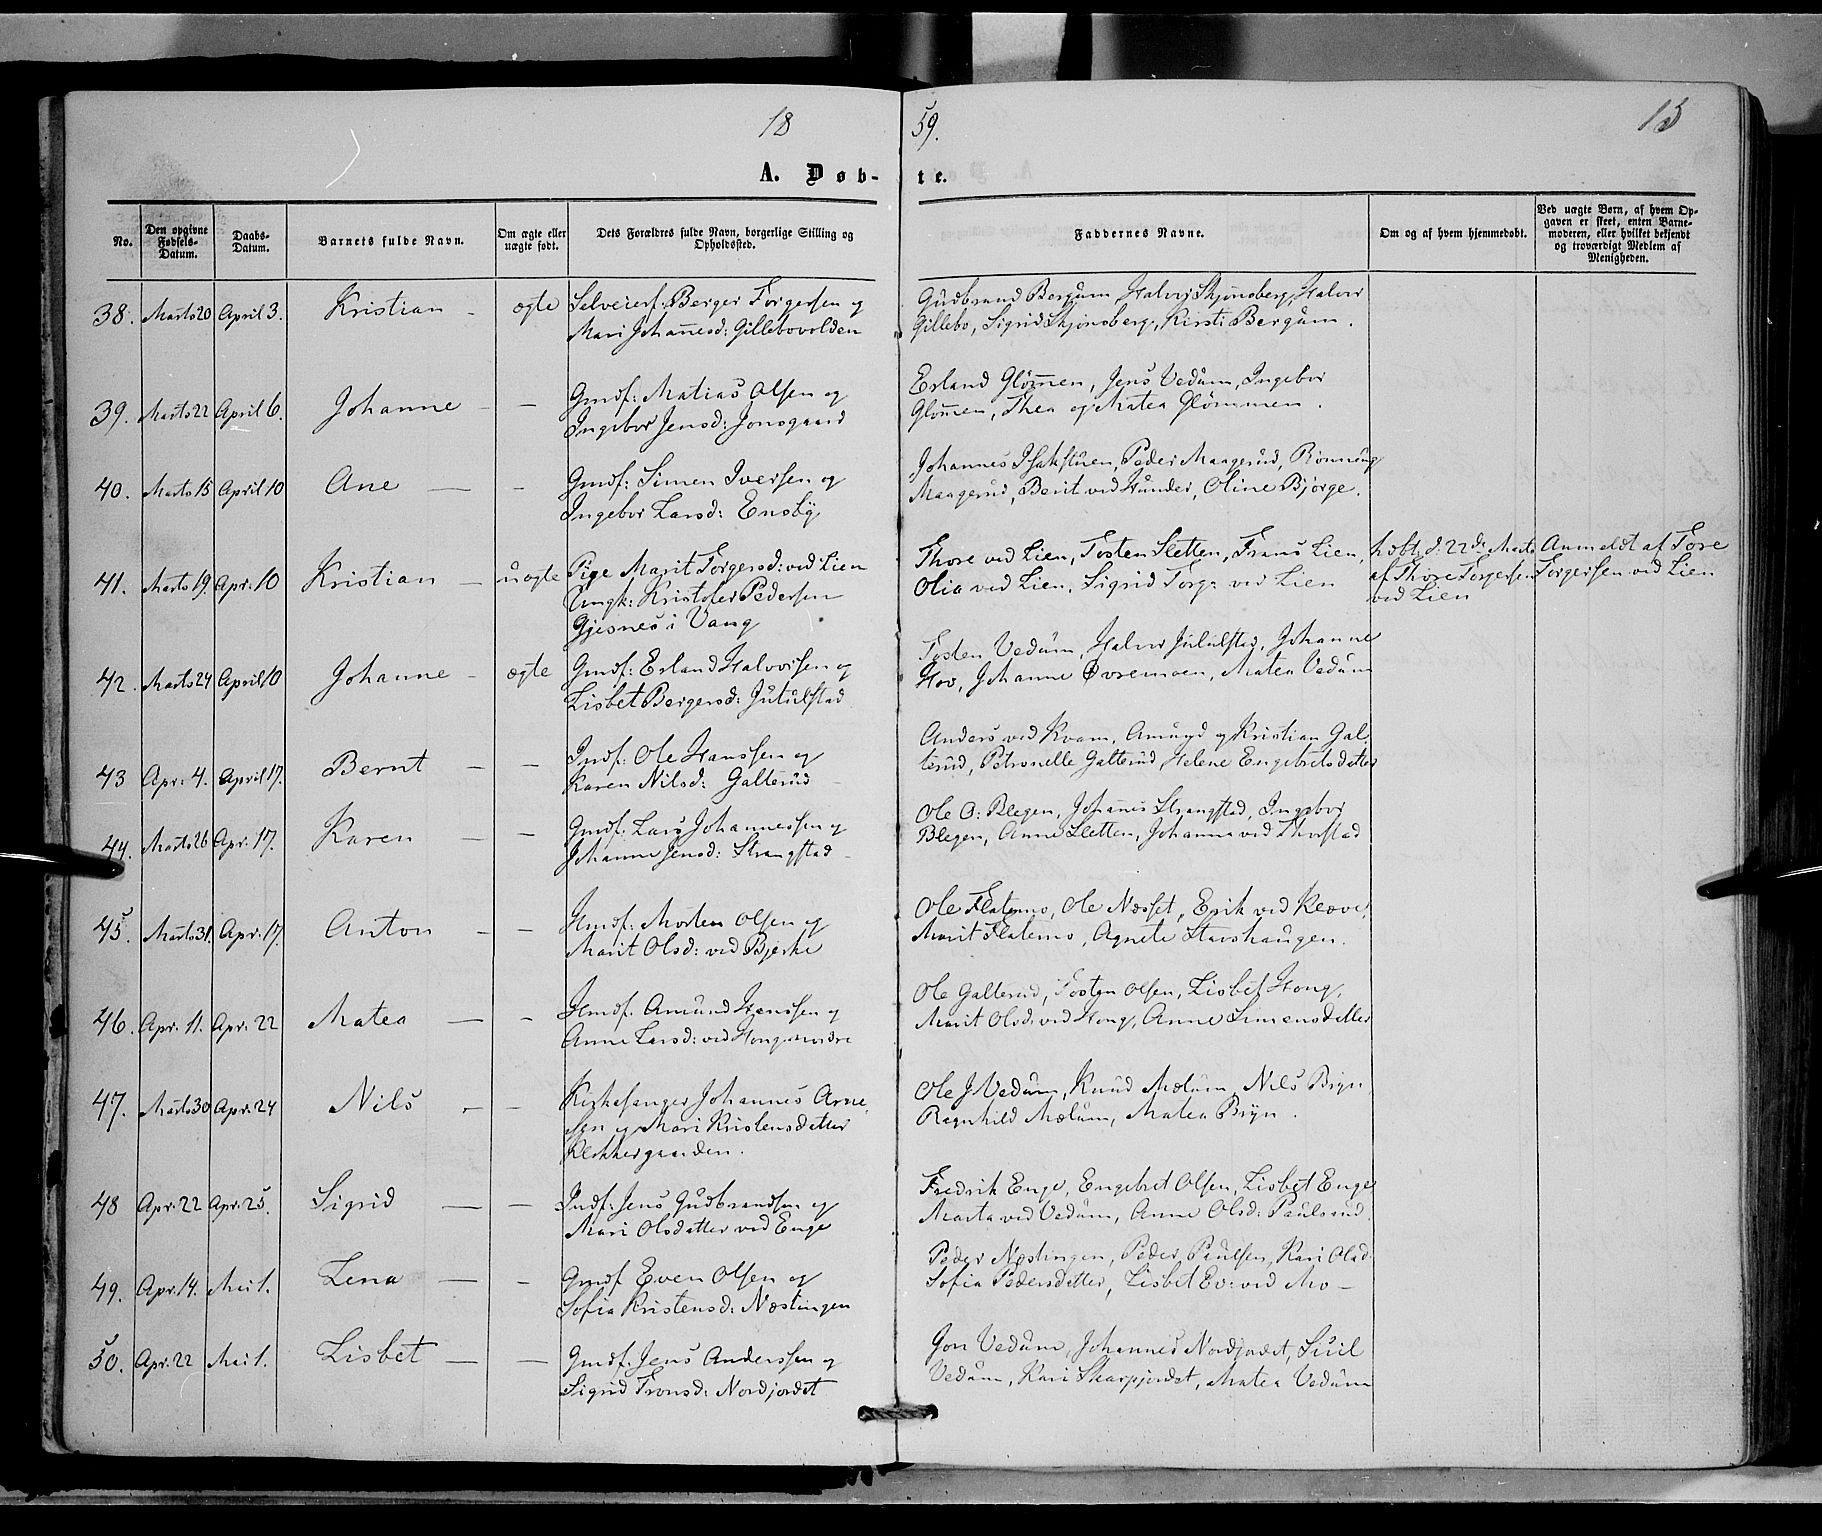 18 59. 15
A. Døb- te.
No.
Den opgivne Fødsels-Datum.
Daabs-Datum.
Barnets fulde Navn.
Om ægte eller uægte født.
Dets Forældres fulde Navn, borgerlige Stilling og Opholdssted.
Faddernes Navne.
Om og af hvem hjemmedøbt.
Ved uægte Børn, af hvem Opgaven er skeet, enten Barnemoderen, eller hvilket bekjendt og troværdigt Medlem af Menigheden.
38. Marts 20 April 3. Kristian — ægte Selveierf: Berger Torgersen og
Mari Johannesd: Gillebovolden
Gudbrand Bergum, Halvor Skjønsberg, Halvor
Gillebo, Sigrid Skjønsberg, Kirsti Bergum.
39. Marts 22 April 6. Johanne — — Gmdf: Matias Olsen og
Ingebor Jensd: Jonsgaard
Erland Glømmen, Jens Vedum, Ingebor
Glømen, Thea og Matea Glømmen.
40. Marts 15 April 10 Ane — — Gmdf: Simen Iversen og
Ingebor Larsd: Ensby
Johannes Isakstuen, Peder Maagerud, Rønnaug
Maagerud, Berit ved Hunder, Oline Bjørge.
41. Marts 19. Apr: 10 Kristian — uægte Pige Marit Torgersd: ved Lien
Ungk: Kristofer Pedersen
Gjesnes i Vang
Thore ved Lien, Tosten Sletten, Frans Lien,
Olia ved Lien, Sigrid Torg: ved Lien
hdbt d: 22de Marts
af Thore Torgersen
ved Lien
Anmeldt af Tore
Torgersen ved Lien
42. Marts 24 April 10 Johanne — ægte Gmdf: Erland Halvorsen og
Lisbet Bergersd: Jutulstad
Tosten Vedum, Halvor Jutulstad, Johanne
Hov, Johanne Øvremoen, Matea Vedum
43 Apr: 4. April 17. Bernt — — Indf: Ole Hanssen og
Karen Nilsd: Galterud
Anders ved Kvam, Amund og Kristian Gal-
terud, Petronelle Galterud, Helene Engebretsdatter
44. Marts 26 Apr: 17. Karen — — Gmdf: Lars Johannessen og
Johanne Jensd: Strangstad
Ole O: Blegen, Johanes Strangstad, Ingebor
Blegen, Anne Sletten, Johanna ved Thorstad
45. Marts 31. Apr: 17. Anton — — Hmdf: Morten Olsen og
Marit Olsd: ved Bjerke
Ole Flatemo, Ole Næsset, Erik ved Kleve,
Marit Flatemo, Agnete Stavshaugen.
46. Apr: 11. Apr: 22 Matea — — Hmdf: Amund Hanssen og
Anne Larsd: ved Hong
Ole Galterud, Tosten Olsen, Lisbet Hong,
Marit Olsd: ved Hong, Anne Simensdatter
47. Marts 30 Apr: 24 Nils — — Kirkesanger Johannes Arne-
sen og Mari Kristensdatter
Klokkergaarden.
Ole J Vedum, Knud Mælum, Nils Bryn
Ragnhild Mælum, Matea Bryn.
48 Apr: 22 Apr: 25. Sigrid — — Indf: Jens Gudbrandsen og
Mari Olsdatter ved Enge
Fredrik Enge, Engebret Olsen, Lisbet Enge
Marta ved Vedum, Anne Olsd: Paulsrud.
49. Apr: 14. Mai 1. Lena — — Gmdf Even Olsen og
Sofia Kristensd: Næstingen
Peder Næstingen, Peder Paulsen, Kari Olsd:
Sofia Pedersdatter, Lisbet Ev: ved Mo —
50. Apr: 22 Mai 1. Lisbet — — Gmdf: Jens Anderssen og
Sigrid Tronsd: Nordjordet
Jon Vedum, Johannes Nordjordet, Siril
Vedum, Kari Skarpjordet, Matea Vedum